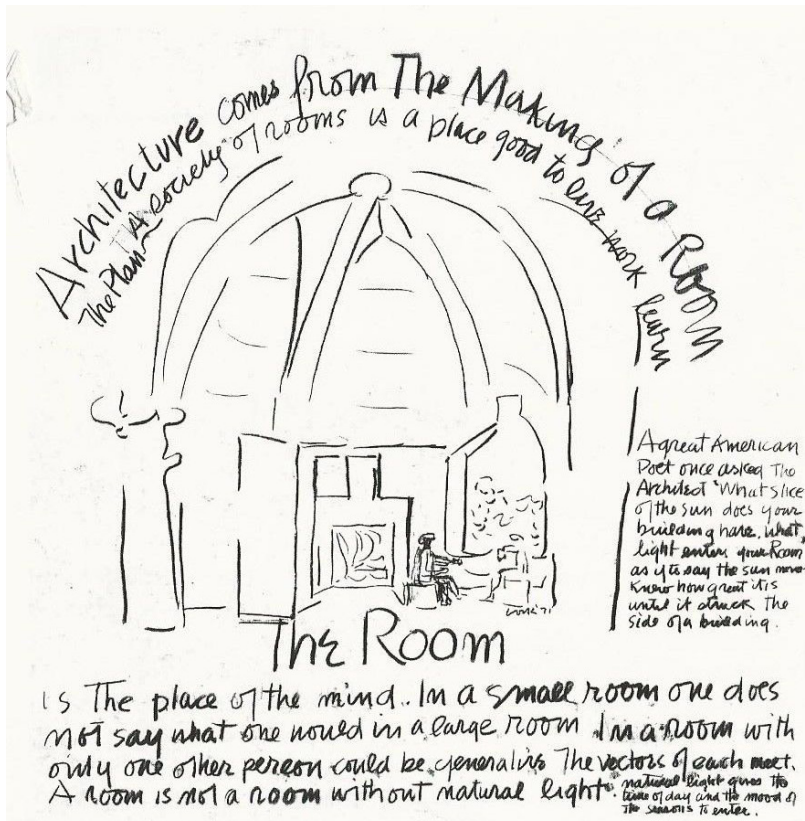 Architecture comes from The Making of a Room
The Plan A society of rooms is a place good to live work learn
A great American
Poet once asked the
Architect "What slice
of the sun does your
building have. What
light enters your Room
as if to say the sun never
knew how great it is
until it struck the
side of a building.
The Room
is The place of the mind. In a small room one does
not say what one would in a large room In a room with
only one other person could be generative The vectors of each meet.
A room is not a room without natural light.
natural light gives the
time of day and the mood of
the seasons to enter.